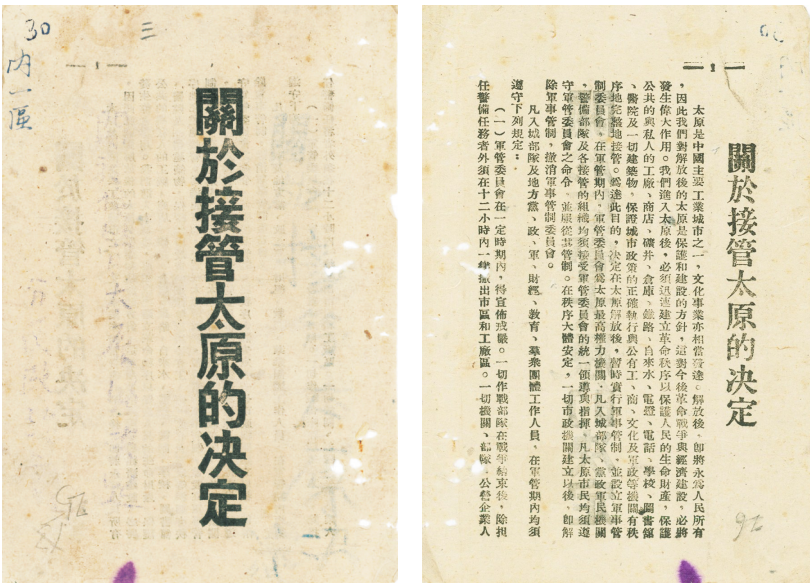 30
內一區
三
— 1 —
關於接管太原的决定
— 1 —
關於接管太原的决定
太原是中國主要工業城市之一，文化事業亦相當發達。解放後，卽將永爲人民所有
，因此我們對解放後的太原是保護和建設的方針，這對今後革命戰爭與經濟建設，必將
發生偉大作用。我們進入太原後，必須迅速建立革命秩序以保護人民的生命財產，保護
公共的與私人的工廠、商店、礦井、倉庫、鐵路、自來水、電燈、電話、學校、圖書館
、醫院及一切建築物，保證城市政策的正確執行與公有工、商、文化及軍政等機關有秩
序地完整地接管。爲達此目的，决定在太原解放後，暫時實行軍事管制，並設立軍事管
制委員會，在軍管期內，軍管委員會爲太原最高權力機關，凡入城部隊、黨政軍民機關
、警備部隊及各接管的組織均須接受軍管委員會的統一領導與指揮，凡太原市民均須遵
守軍管委員會之命令，並服從其管制。在秩序大體安定，一切市政機關建立以後，卽解
除軍事管制，撤消軍事管制委員會。
凡入城部隊及地方黨、政、軍、財經、教育、羣衆團體工作人員，在軍管期內均須
遵守下列規定：
（一）軍管委員會在一定時期內，得宣佈戒嚴。一切作戰部隊在戰爭結束後，除担
任警備任務者外須在十二小時內一律撤出市區和工廠區。一切機關、部隊、公營企業人